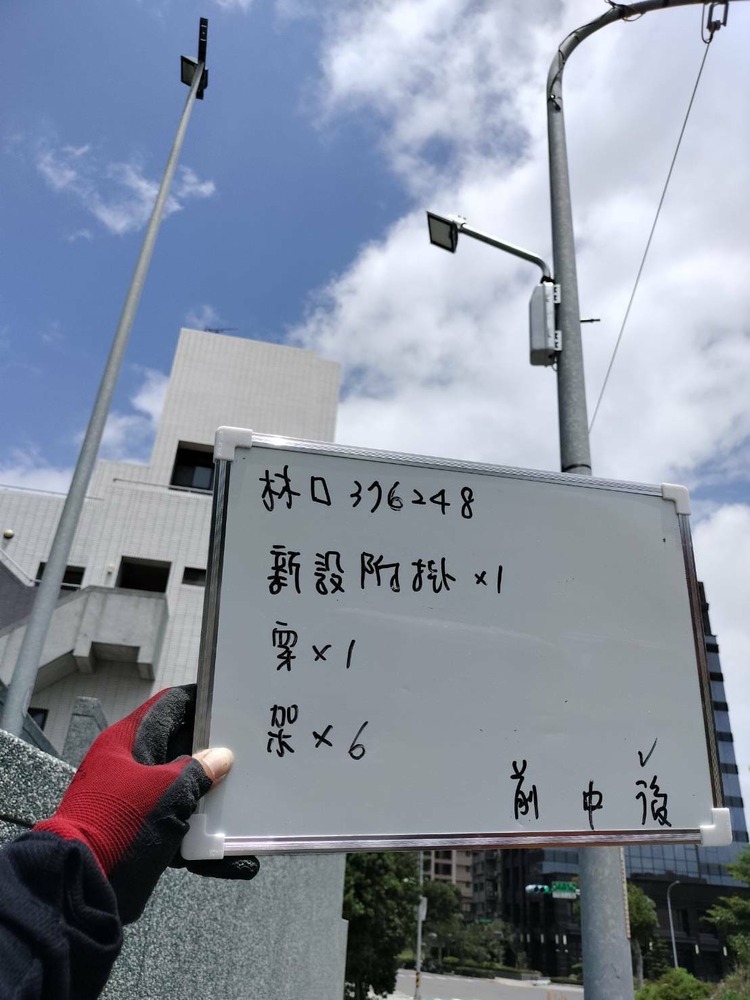 林口 376248
新設附掛 ×1
穿 × 1
架 × 6
✓
前 中 後